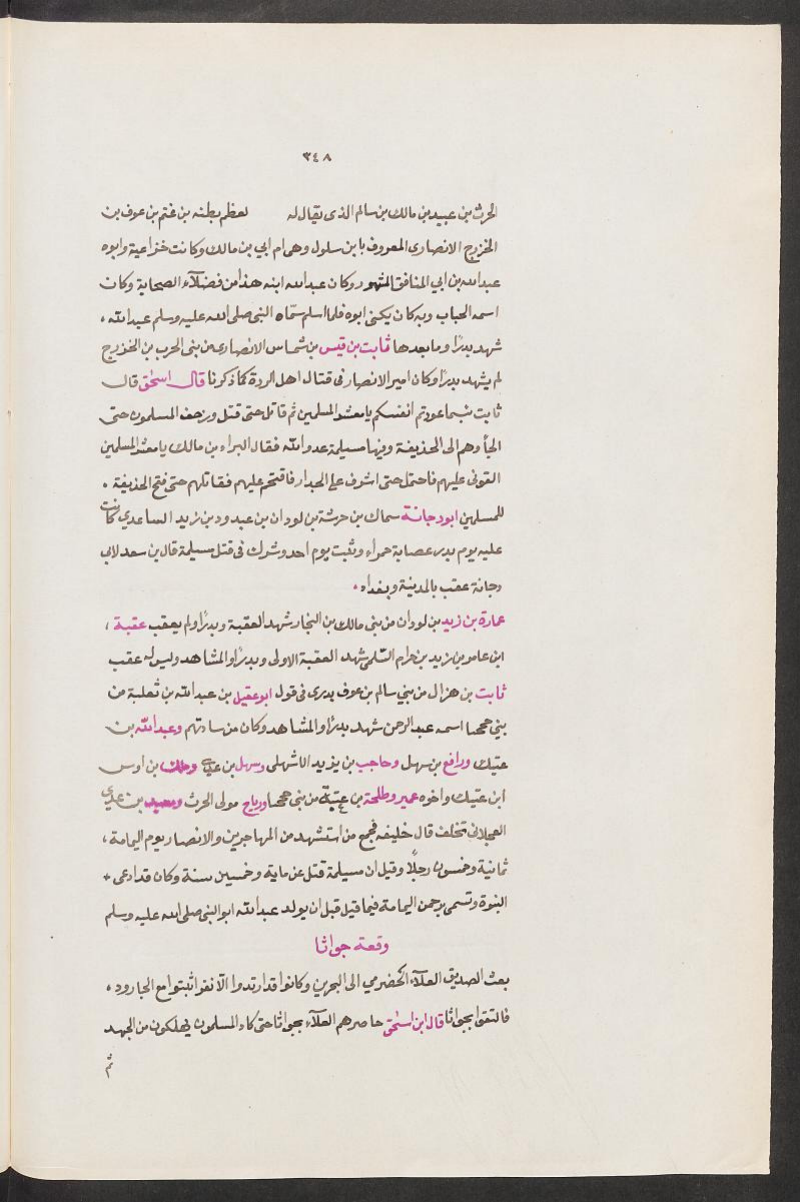 ٣٤٨
الحرث بن عبيد بن مالك بن سالم الذى يقال له لعظم بطنه بن غنم بن عوف بن
الخزرج الانصارى المعروف بابن سلول وهى ام ابي بن مالك وكانت خزاعية وابوه
عبد الله بن ابي المنافق المشهور وكان عبد الله ابنه هذا من فضلآء الصحابة وكان
اسمه الحباب وبه كان يكنى ابوه فلما اسلم سمّاه النبى صلى الله عليه وسلم عبد الله ،
شهد بدرًا وما بعدها ثابت بن قيس بن شماس الانصارى من بنى الحرب بن الخزرج
لم يشهد بدرًا وكان امير الانصار فى قتال اهل الردة كما ذكرنا قال اسحٰق قال
ثابت بئسما عودتم انفسكم يا معشر المسلمين ثم قاتل حتى قتل وزحف المسلمون حتى
الجأوهم الى الحديقة وفيها مسيلمة عدو الله فقال البراء بن مالك يا معشر المسلمين
القونى عليهم فاحتمل حتى اشرف على الجدار فاقتحم عليهم فقاتلهم حتى فتح الحديقة .
للمسلمين ابو دجانة سماك بن خرشة بن لودان بن عبدود بن زيد الساعدي كانت
عليه يوم بدر عصابة حمراء وثبت يوم احد وشرك فى قتل مسيلمة قال بن سعد لابي
دجانة عقب بالمدينة وبغداد .
عمارة بن زيد بن لودان من بنى مالك بن النجار شهد العقبة وبدرًا ولم يعقب عقبة ،
ابن عامر بن زيد بن حرام السّلمى شهد العقبة الاولى وبدرًا والمشاهد وليس له عقب
ثابت بن هزال من بني سالم بن عوف بدرى فى قول ابو عقيل بن عبد الله بن ثعلبة من
بنى جحجبا اسمه عبد الرحمن شهد بدرًا والمشاهد وكان من سادتهم وعبد الله بن
عتيك ورافع بن سهل وحاجب بن يزيد الاشهلى وسهل بن عدي ومالك بن اوس
ابن عتيك واخوه عمير وطلحة بن عتبة من بنى جحجبا ورباح مولى الحرث ومعن بن عدي
العجلانى تخلف قال خليفه فجمع من استشهد من المهاجرين والانصار يوم اليمامة ،
ثمانية وخمسون رجلًا وقيل ان مسيلمة قتل عن ماية وخمسين سنة وكان قد ادعى +
النبوة وتسمى برحمن اليمامة فيما قيل قبل ان يولد عبد الله ابو النبى صلى الله عليه وسلم
وقعة جواثا
بعث الصديق العلآء الحضرمي الى البحرين وكانوا قد ارتدوا الّا نفرا ثبتوا مع الجارود ،
فالتقوا بجواثا قال ابن اسحٰق حاصرهم العلآء بجواثا حتى كاد المسلمون يهلكون من الجهد
ثم